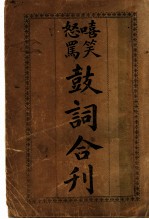 嘻笑
怒罵
鼓詞合刊